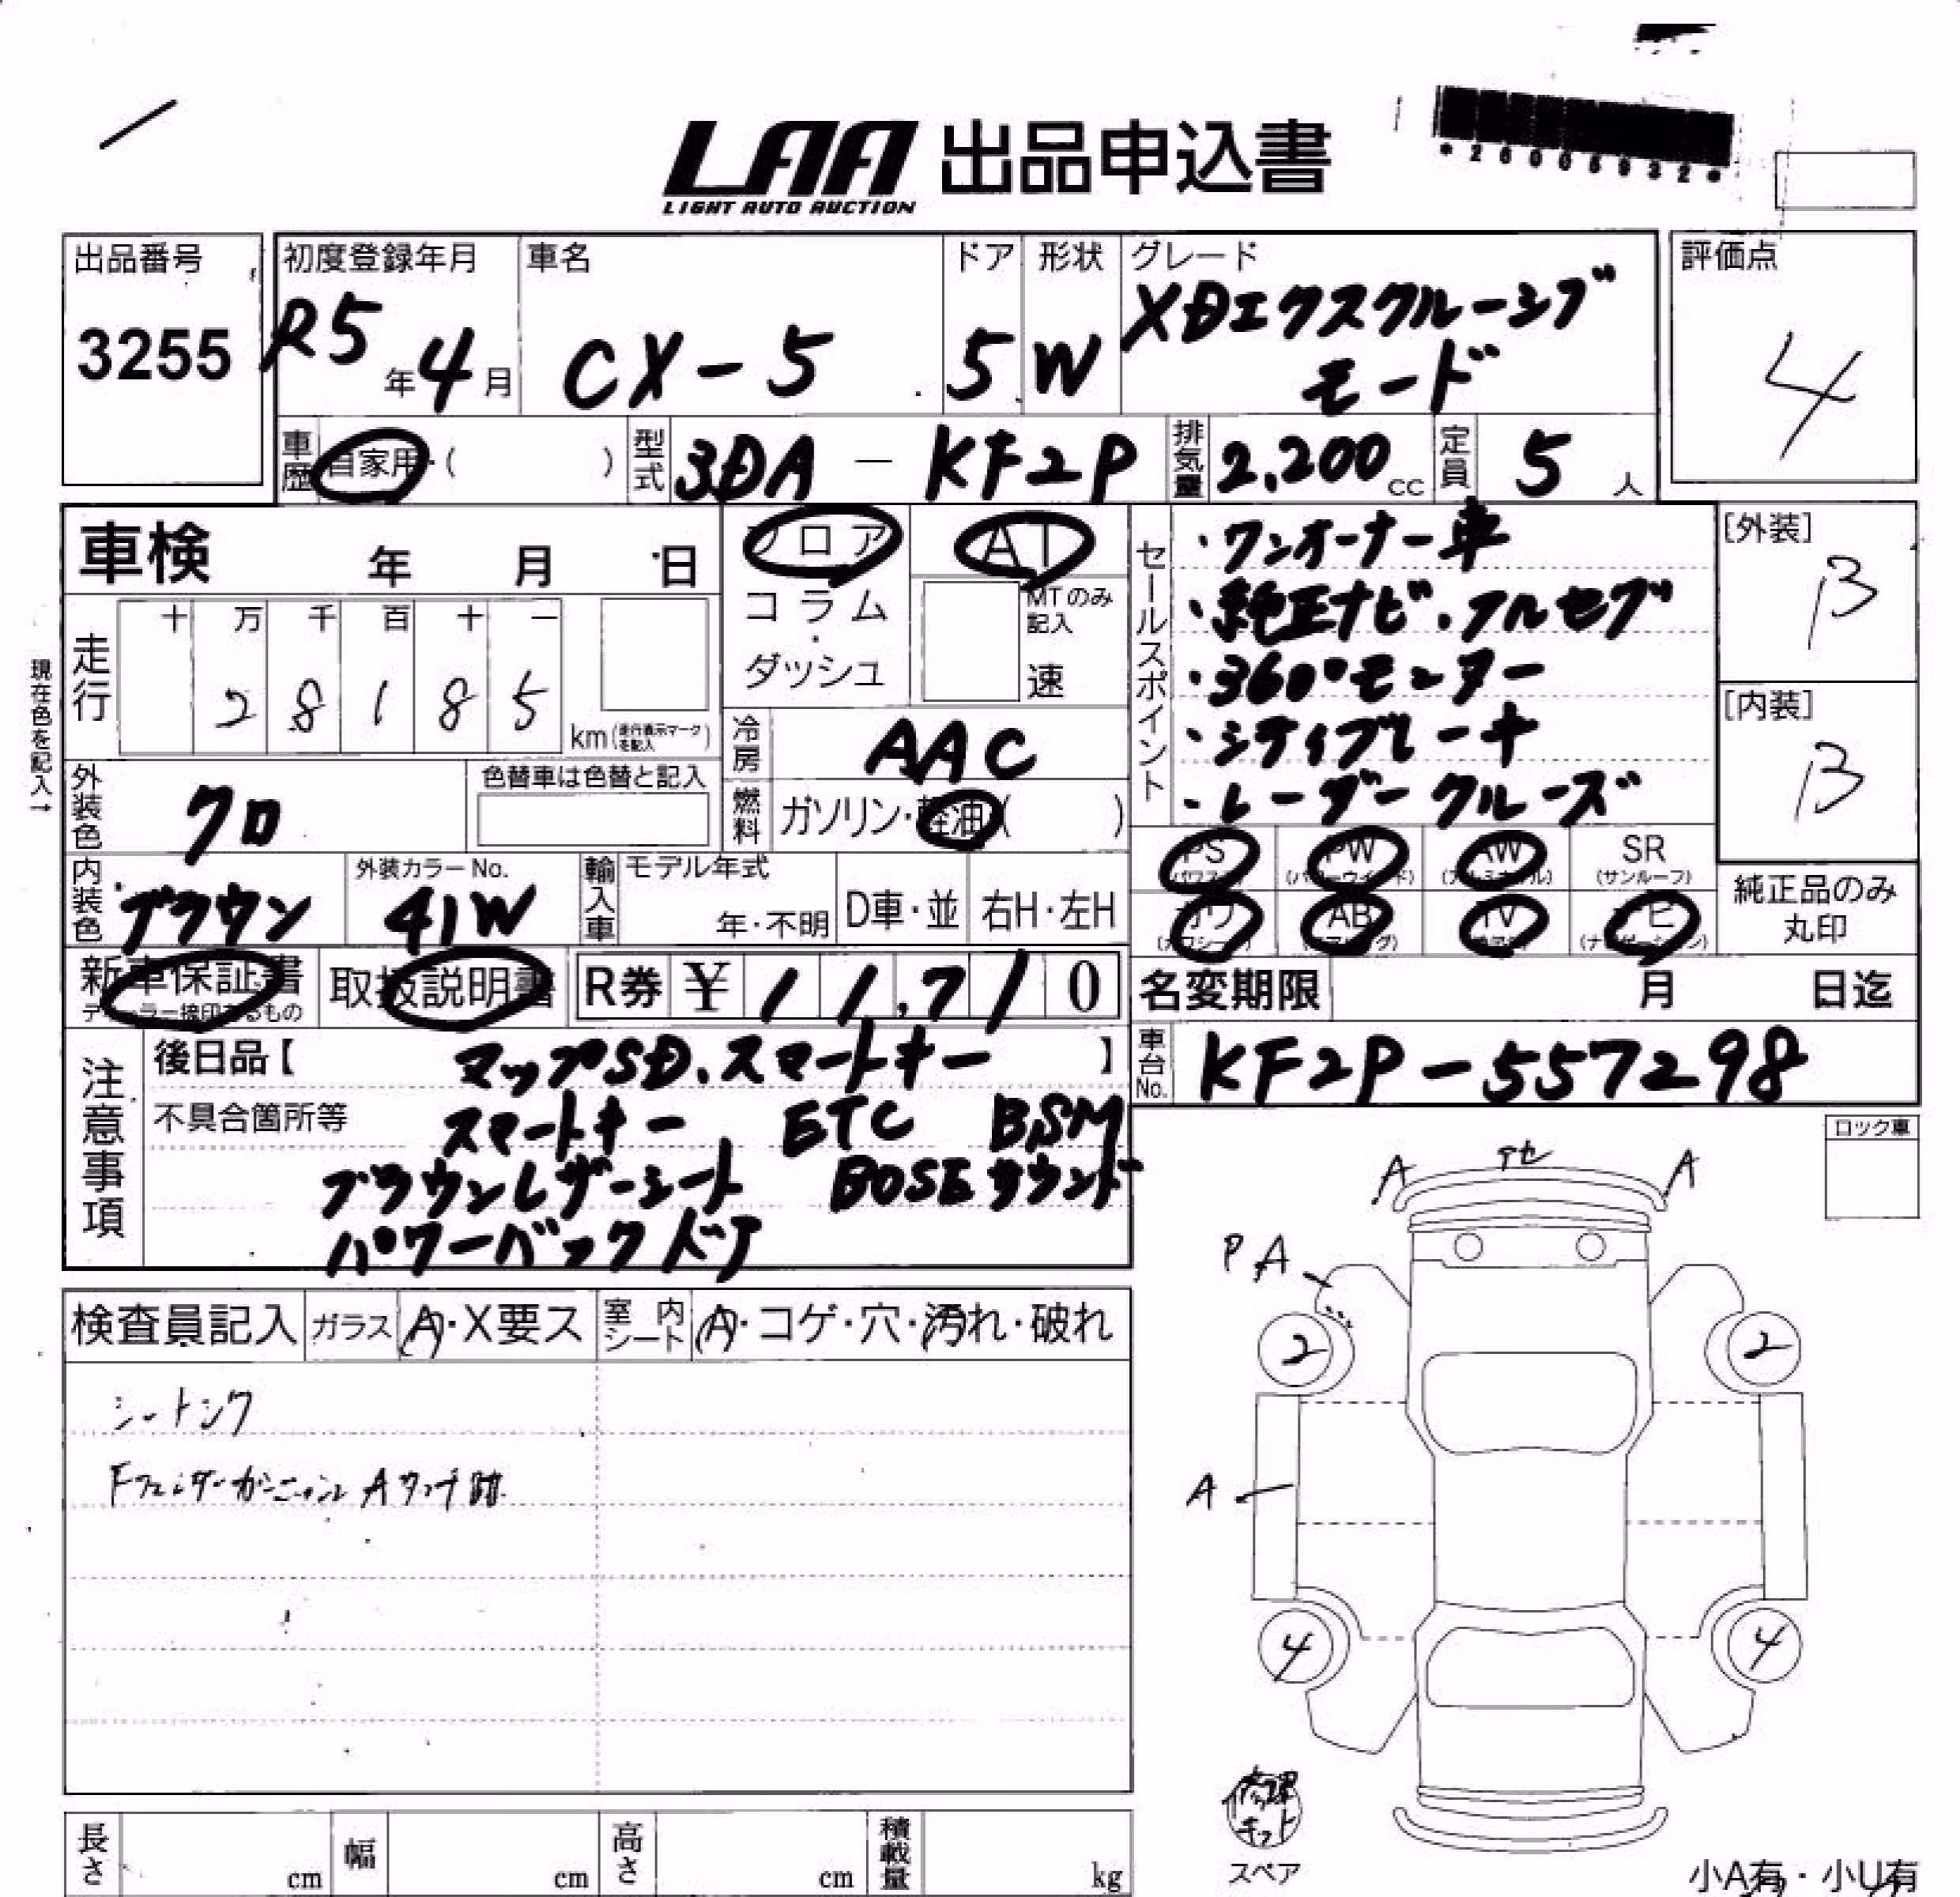 LAA 出品申込書
LIGHT AUTO AUCTION
*26006932*
出品番号
3255
初度登録年月
R5年4月
車名
CX-5
ドア
5
形状
W
グレード
XDエクスクルーシブ
モード
評価点
4
車歴 自家用・( )
型式 3DA - KF2P
排気量 2,200cc
定員 5人
車検 年 月 日
フロア
コラム
・
ダッシュ
AT
MTのみ
記入
速
セールスポイント
・ワンオーナー車
・純正ナビ・フルセグ
・360°モニター
・シティブレーキ
・レーダークルーズ
[外装]
B
[内装]
B
現在色を記入→
走行
十 万 千 百 十 一
2 8 1 8 5
km(走行表示マークを記入)
冷房 AAC
燃料 ガソリン・軽油( )
外装色 クロ
色替車は色替と記入
内装色 ブラウン
外装カラーNo.
41W
輸入車 モデル年式
年・不明
D車・並
右H・左H
PS (パワステ)
PW (パワーウインド)
AW (アルミホイル)
SR (サンルーフ)
カワ (カワシート)
AB (エアバッグ)
TV
ナビ (ナビゲーション)
純正品のみ
丸印
新車保証書
ディーラー捺印あるもの
取扱説明書
R券 ¥ 11,710
名変期限 月 日迄
車台No. KF2P-557298
注意事項
後日品【 マップSD、スマートキー 】
不具合箇所等
スマートキー ETC BSM
ブラウンレザーシート BOSEサウンド
パワーバックドア
ロック車
検査員記入
ガラス A・X要ス
室内シート A・コゲ・穴・汚れ・破れ
シートシワ
FフェンダーガーニッシュAタッチ跡
A アセ A
P A
2 2
A
4 4
修理
キット
スペア
長さ cm
幅 cm
高さ cm
積載量 kg
小A有・小U有